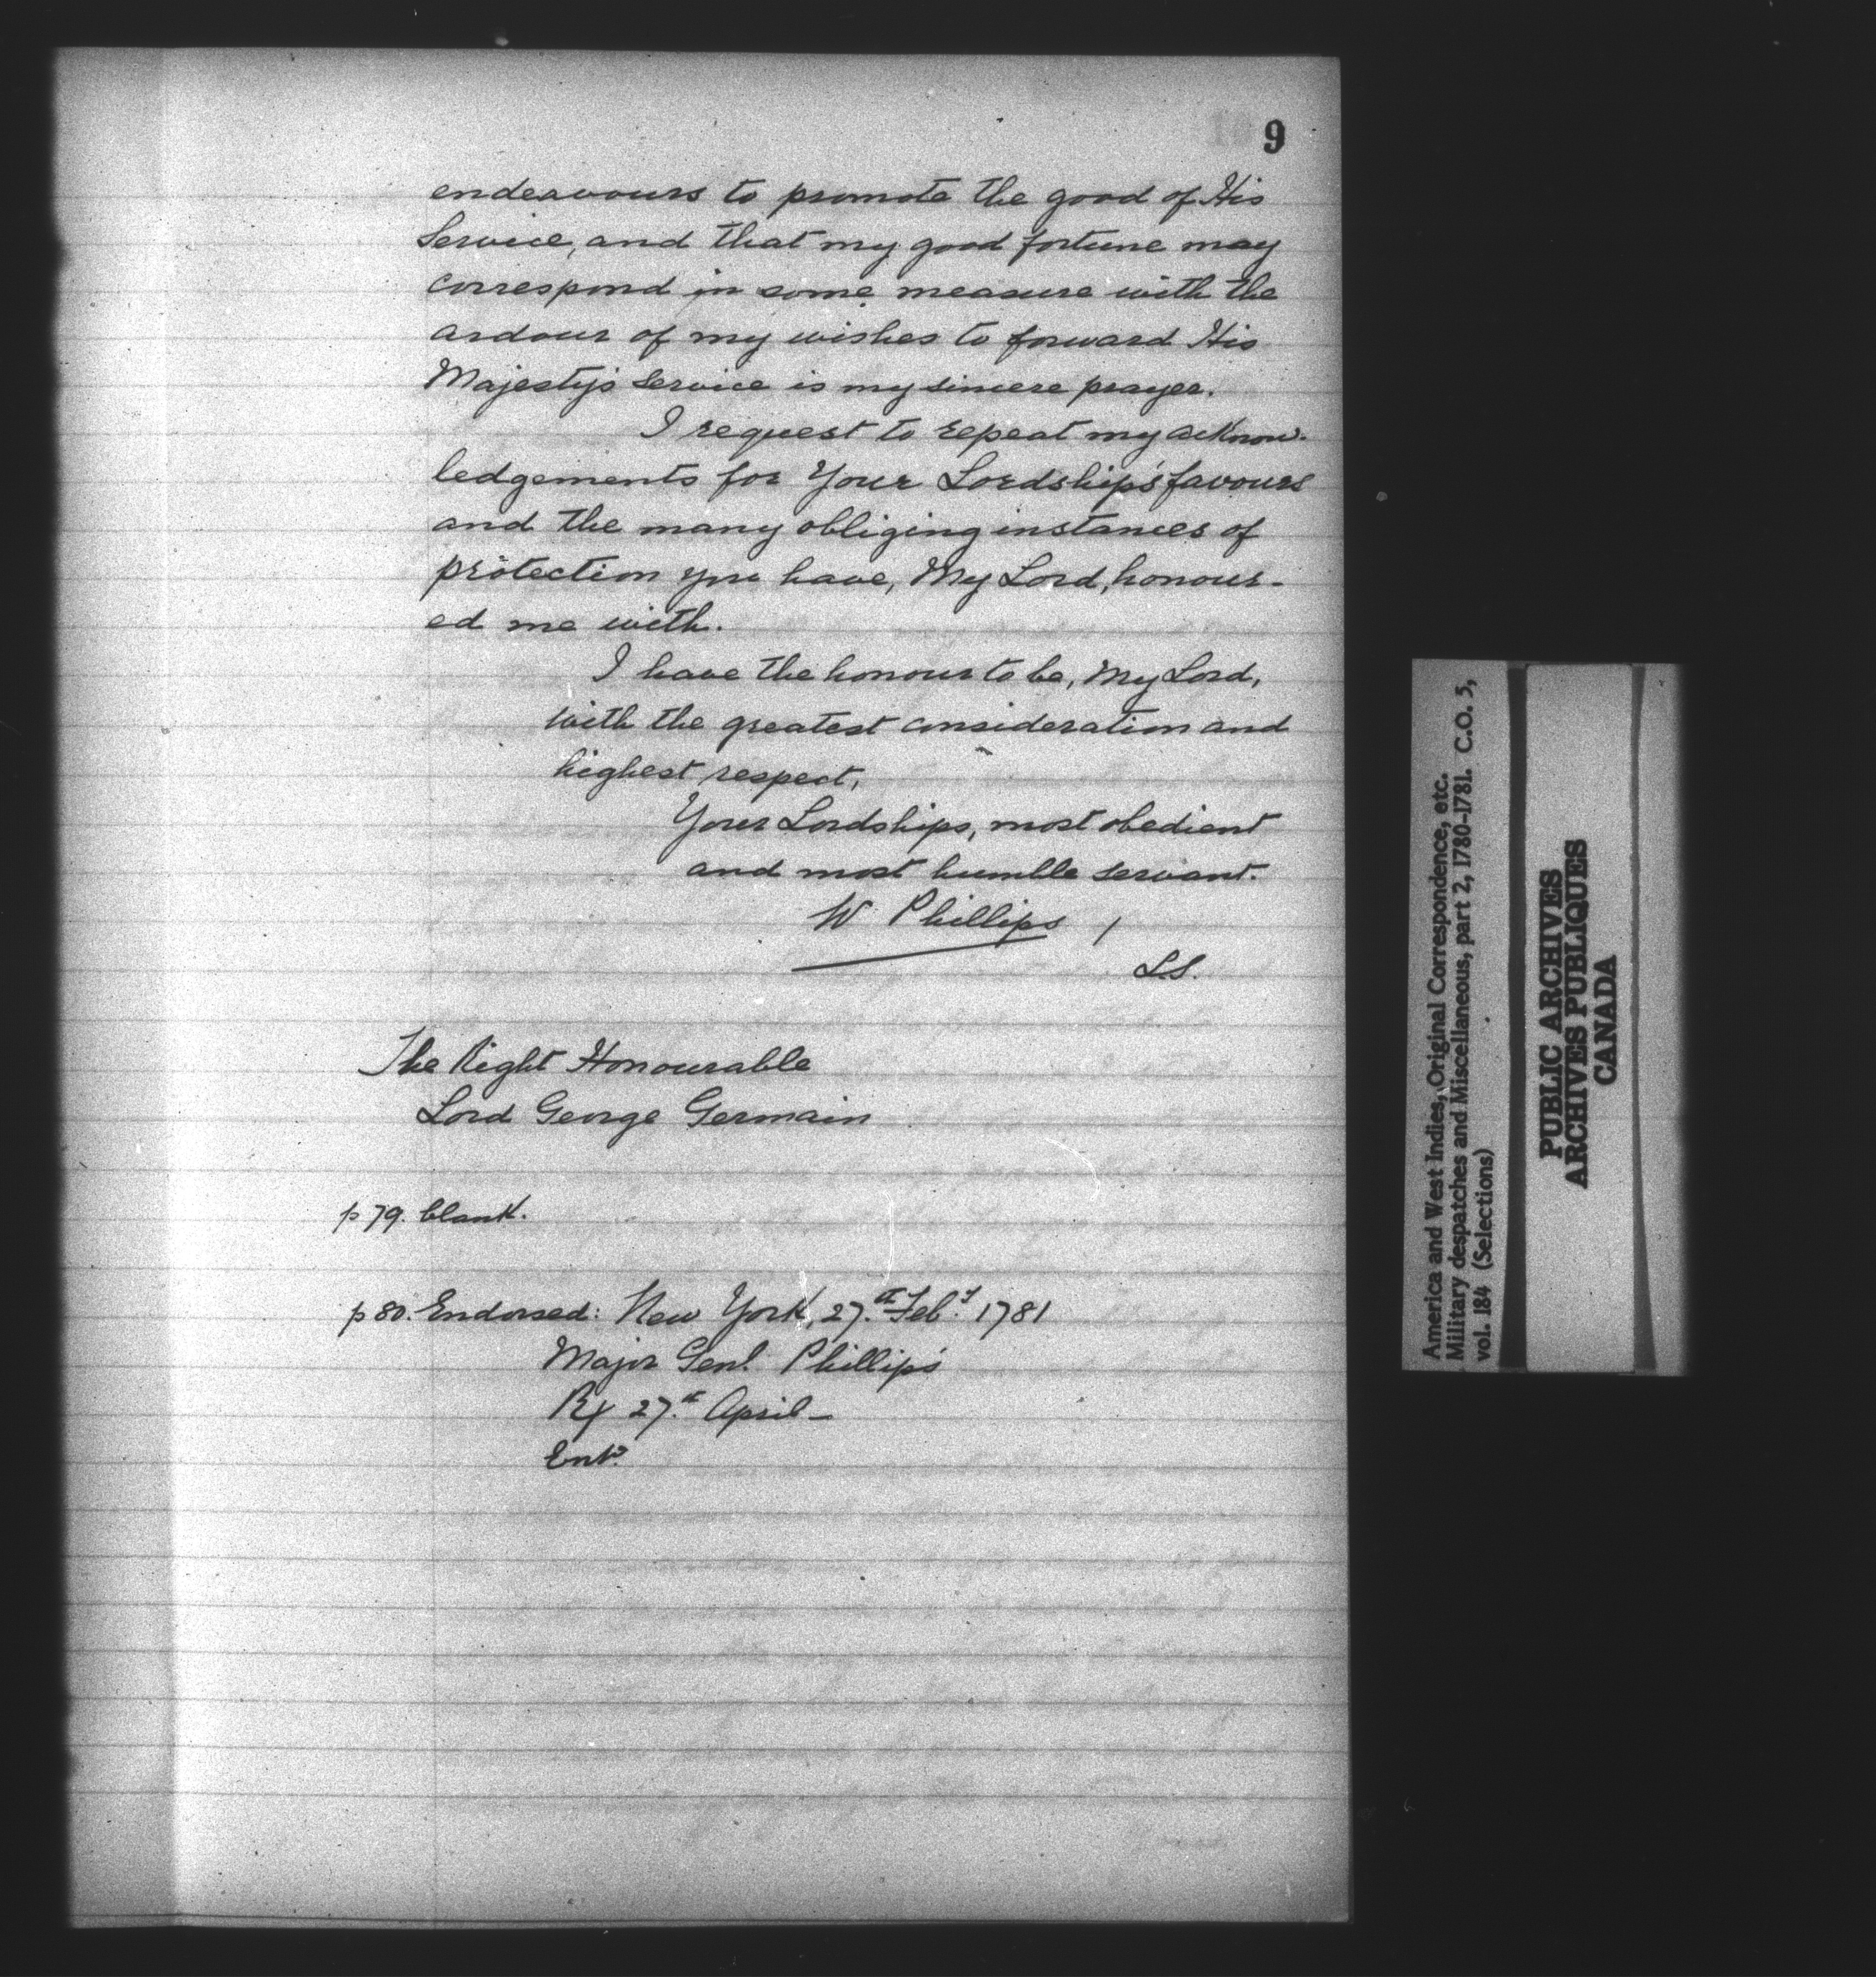 9
endeavours to promote the good of His
Service, and that my good fortune may
correspond in some measure with the
ardour of my wishes to forward His
Majesty's Service is my sincere prayer.
I request to repeat my acknow-
ledgements for Your Lordship's favours
and the many obliging instances of
protection you have, My Lord, honour-
ed me with.
I have the honour to be, My Lord,
with the greatest consideration and
highest respect,
Your Lordships, most obedient
and most humble servant.
W Phillips /
L.S.
The Right Honourable
Lord George Germain
p 79. blank.
p 80. Endorsed: New York, 27.th Feb.y 1781
Major Genl. Phillips
Rx 27.th April -
Ent.d
America and West Indies, Original Correspondence, etc.
Military despatches and Miscellaneous, part 2, 1780-1781. C.O. 5,
vol. 184 (Selections)
PUBLIC ARCHIVES
ARCHIVES PUBLIQUES
CANADA